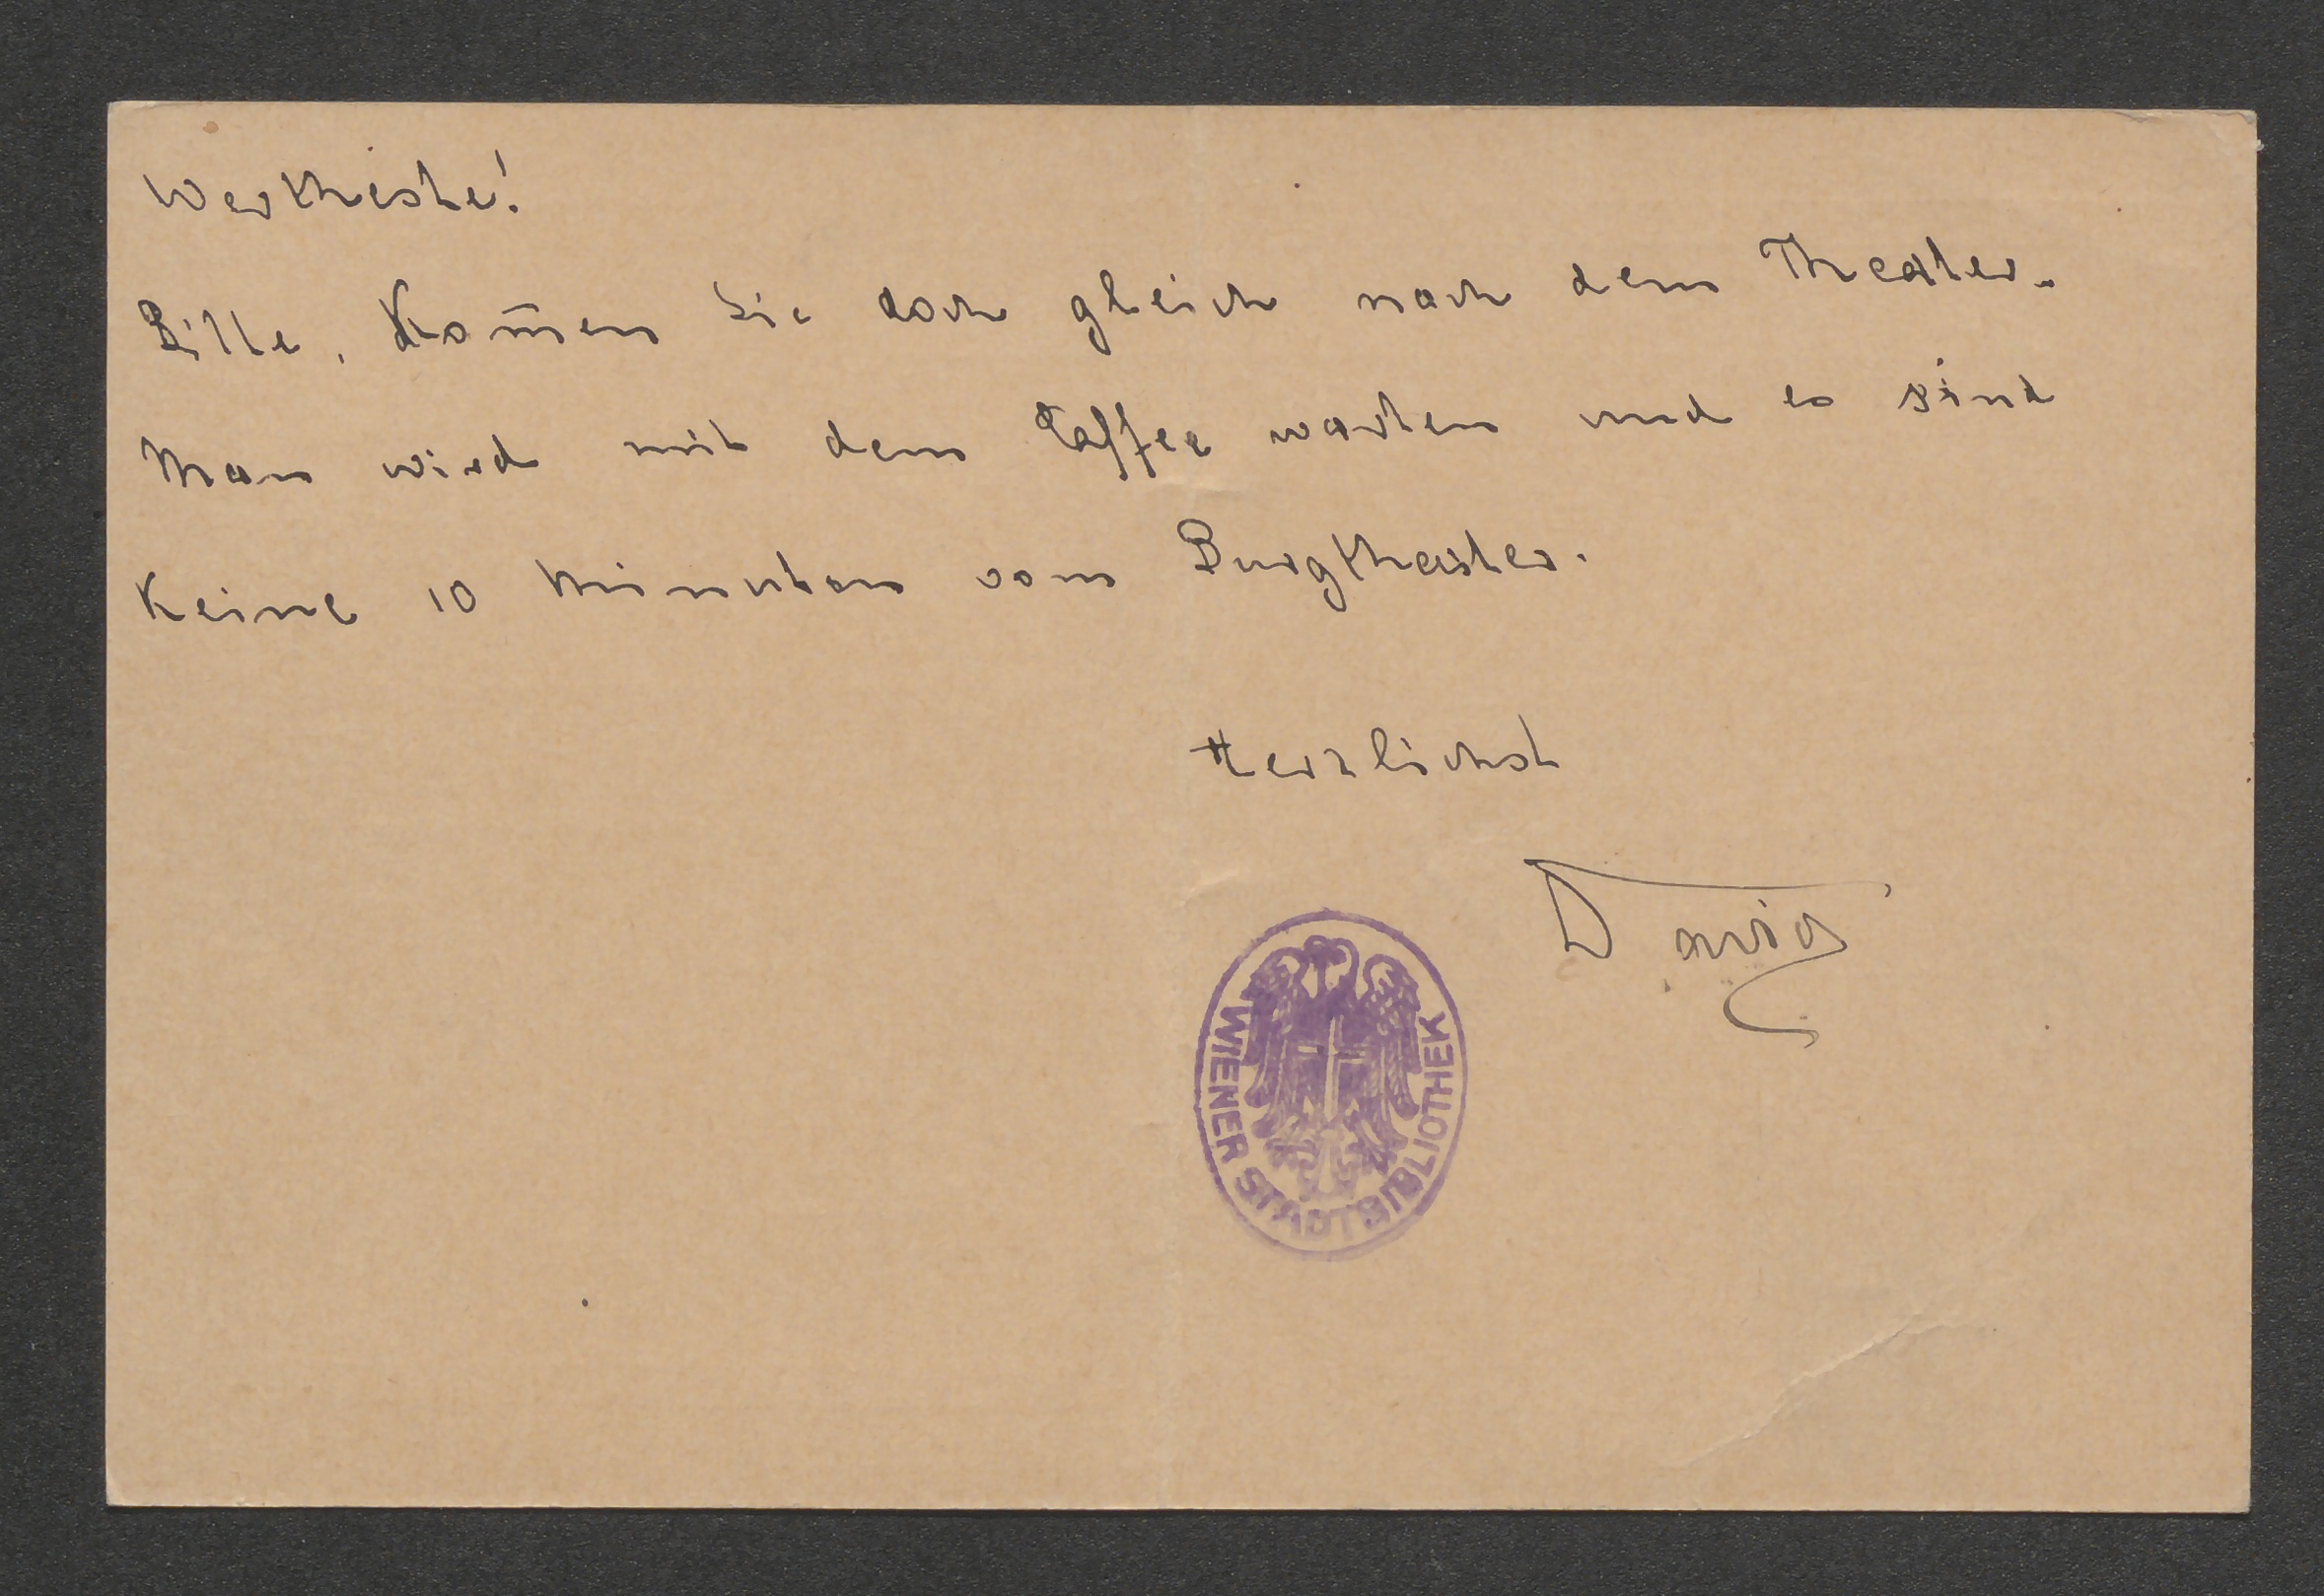 Wertheste!
Bitte, kom̄en Sie doch gleich nach dem Theater.
Man wird mit dem Caffee warten und es sind
Keine 10 Minuten vom Burgtheater.
Herzlichst
David
WIENER STADTBIBLIOTHEK